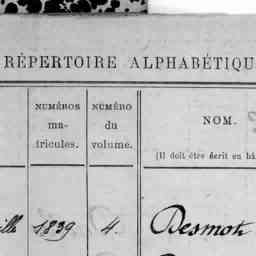 RÉPERTOIRE ALPHABÉTIQU
NUMÉROS
ma-
tricules.
NUMÉRO
du
volume.
NOM.
(Il doit être écrit en bâ
ille 1839 4. Desmots